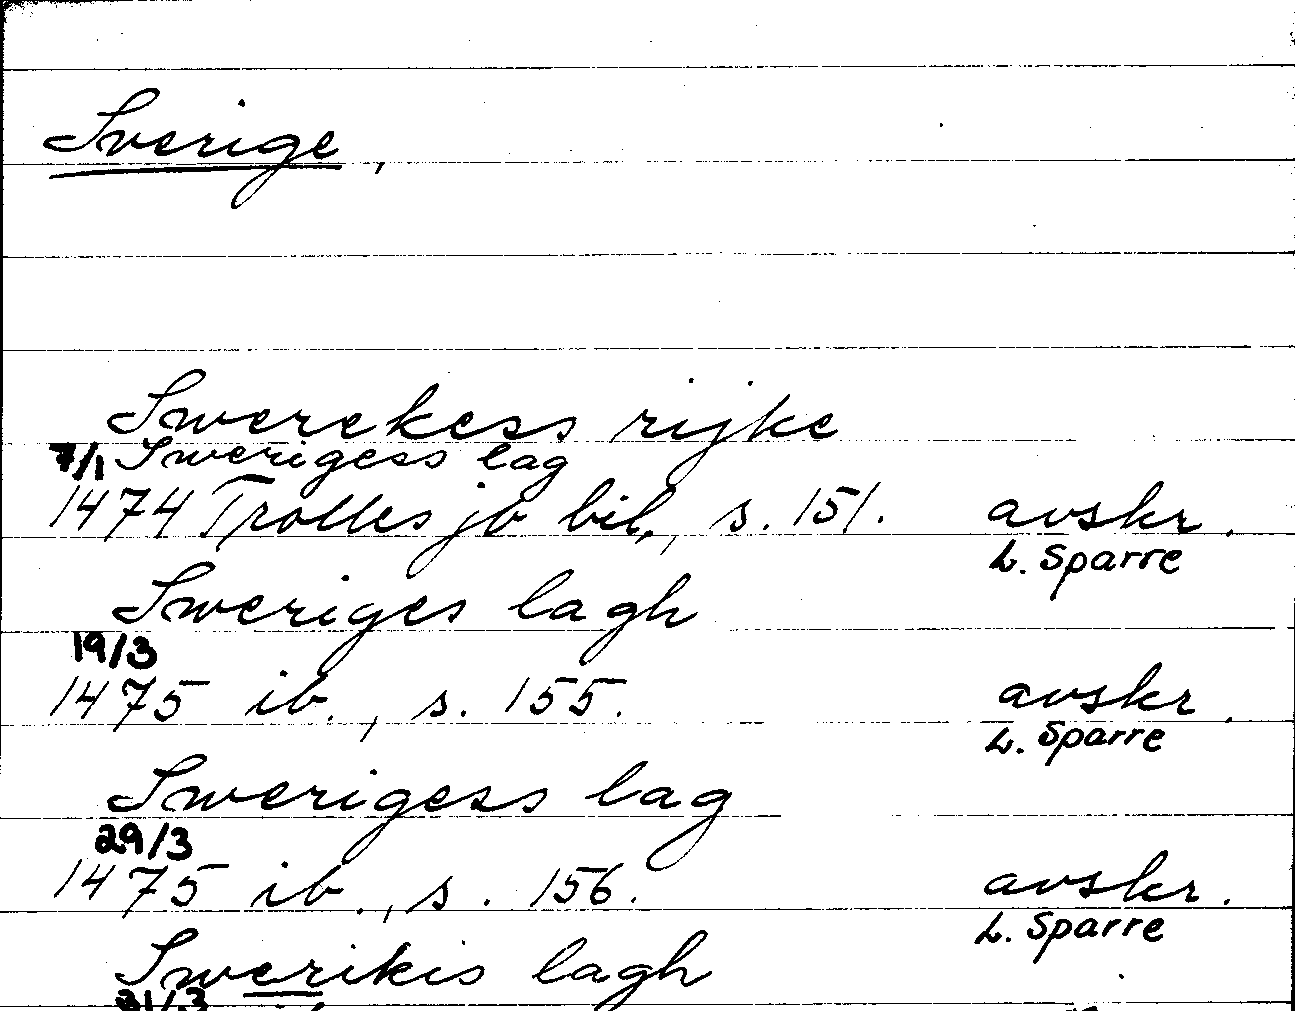 Sverige,
Swerekess rijke
7/1 Swerigess lag
1474 Trolles jb bil., s. 151. avskr.
L. Sparre
Sweriges lagh
19/3
1475 ib., s. 155. avskr.
L. Sparre
Swerigess lag
29/3
1475 ib., s. 156. avskr.
L. Sparre
Swerikis lagh
31/3